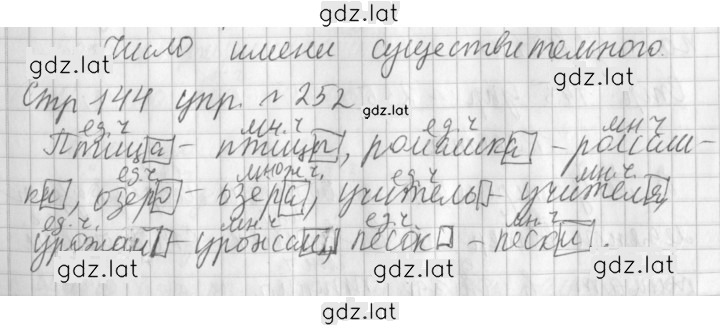 gdz.lat
Число имени существительного.
gdz.lat
gdz.lat
Стр 144 упр. № 252
gdz.lat
ед.ч мн.ч ед.ч мн ч
Птица - птицы, ромашка - ромаш-
ед.ч множ.ч. ед.ч мн.ч.
ки, озеро - озера, учитель - учителя,
ед.ч. мн.ч. ед.ч мн.ч.
урожай - урожаи, песок - пески.
gdz.lat gdz.lat gdz.lat
gdz.lat